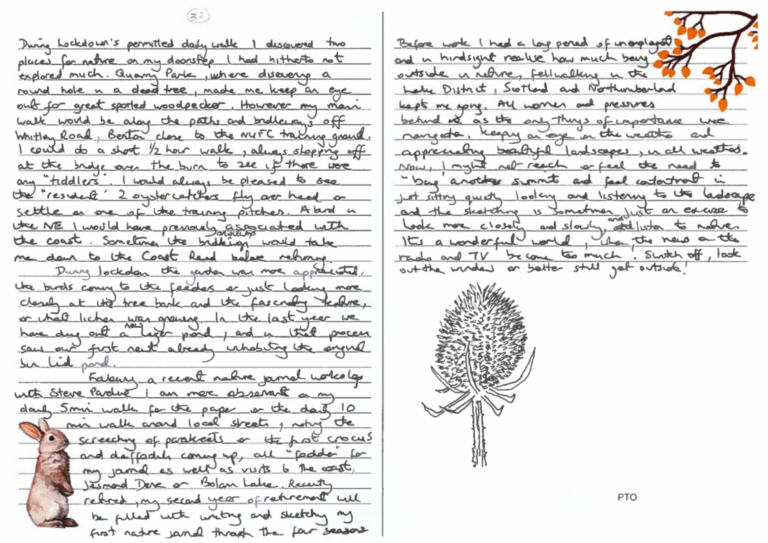 22
During lockdown's permitted daily walk I discovered two
places for nature on my doorstep I had hitherto not
explored much. Quarry Park, where discovering a
round hole in a dead tree, made me keep an eye
out for great spotted woodpecker. However my main
walk would be along the paths and bridleways off
Whitley Road, Benton close to the NUFC training ground.
I could do a short 1/2 hour walk, always stopping off
at the bridge over the burn to see if there were
any "tiddlers". I would always be pleased to see
the "resident" 2 oystercatchers fly over head or
settle on one of the training pitches. A bird in
the NE I would have previously associated with
the coast. Sometimes the bridleway would take
me down to the Coast Road before returning.
During lockdown the garden was more appreciated,
the birds coming to the feeders or just looking more
closely at the tree bark and the fascinating texture,
or what lichen was growing. In the last year we
have dug out a new larger pond, and in that process
saw our first newt already inhabiting the original
bin lid pond.
Following a recent nature journal workshop
with Steve Pardue I am more observant on my
daily 5min walk for the paper or the daily 10
min walk around local streets, noting the
screeching of parakeets or the first crocus
and daffodils coming up, all "fodder" for
my journal as well as visits to the coast,
Jesmond Dene or Bolam Lake. Recently
retired, my second year of retirement will
be filled with writing and sketching my
first nature journal through the four seasons
Before work I had a long period of unemployment
and in hindsight realise how much being
outside in nature, fellwalking in the
Lake District, Scotland and Northumberland
kept me going. All worries and pressures
behind me as the only things of importance were
navigation, keeping an eye on the weather and
appreciating beautiful landscapes, in all weathers.
Now, I might not reach or feel the need to
"bag" another summit and feel contentment in
just sitting quietly looking and listening to the landscape
and the sketching is sometimes just an excuse to
look more closely and slowly, and listen to nature.
It's a wonderful world, when the news on the
radio and TV become too much. Switch off, look
out the window or better still get outside!
PTO